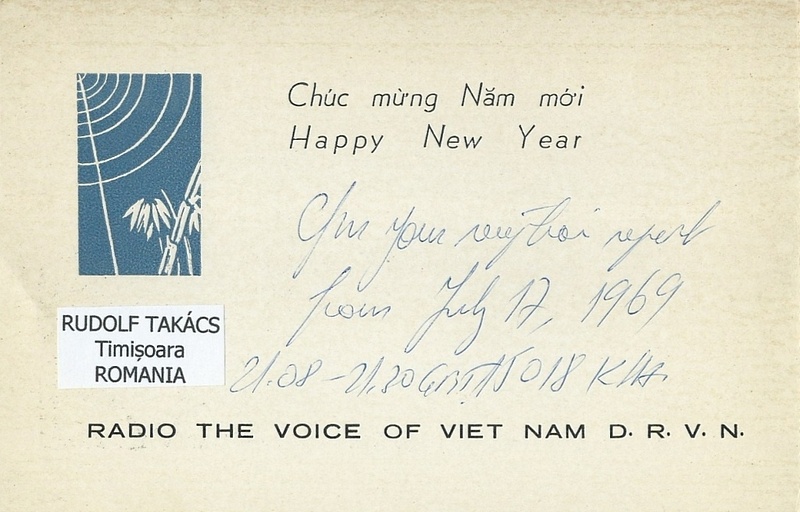 Chúc mừng Năm mới
Happy New Year
your report
from July 17, 1969
RUDOLF TAKÁCS
Timișoara
ROMANIA
21.08 - 21.30 GMT 15018 KHz.
RADIO THE VOICE OF VIET NAM D. R. V. N.